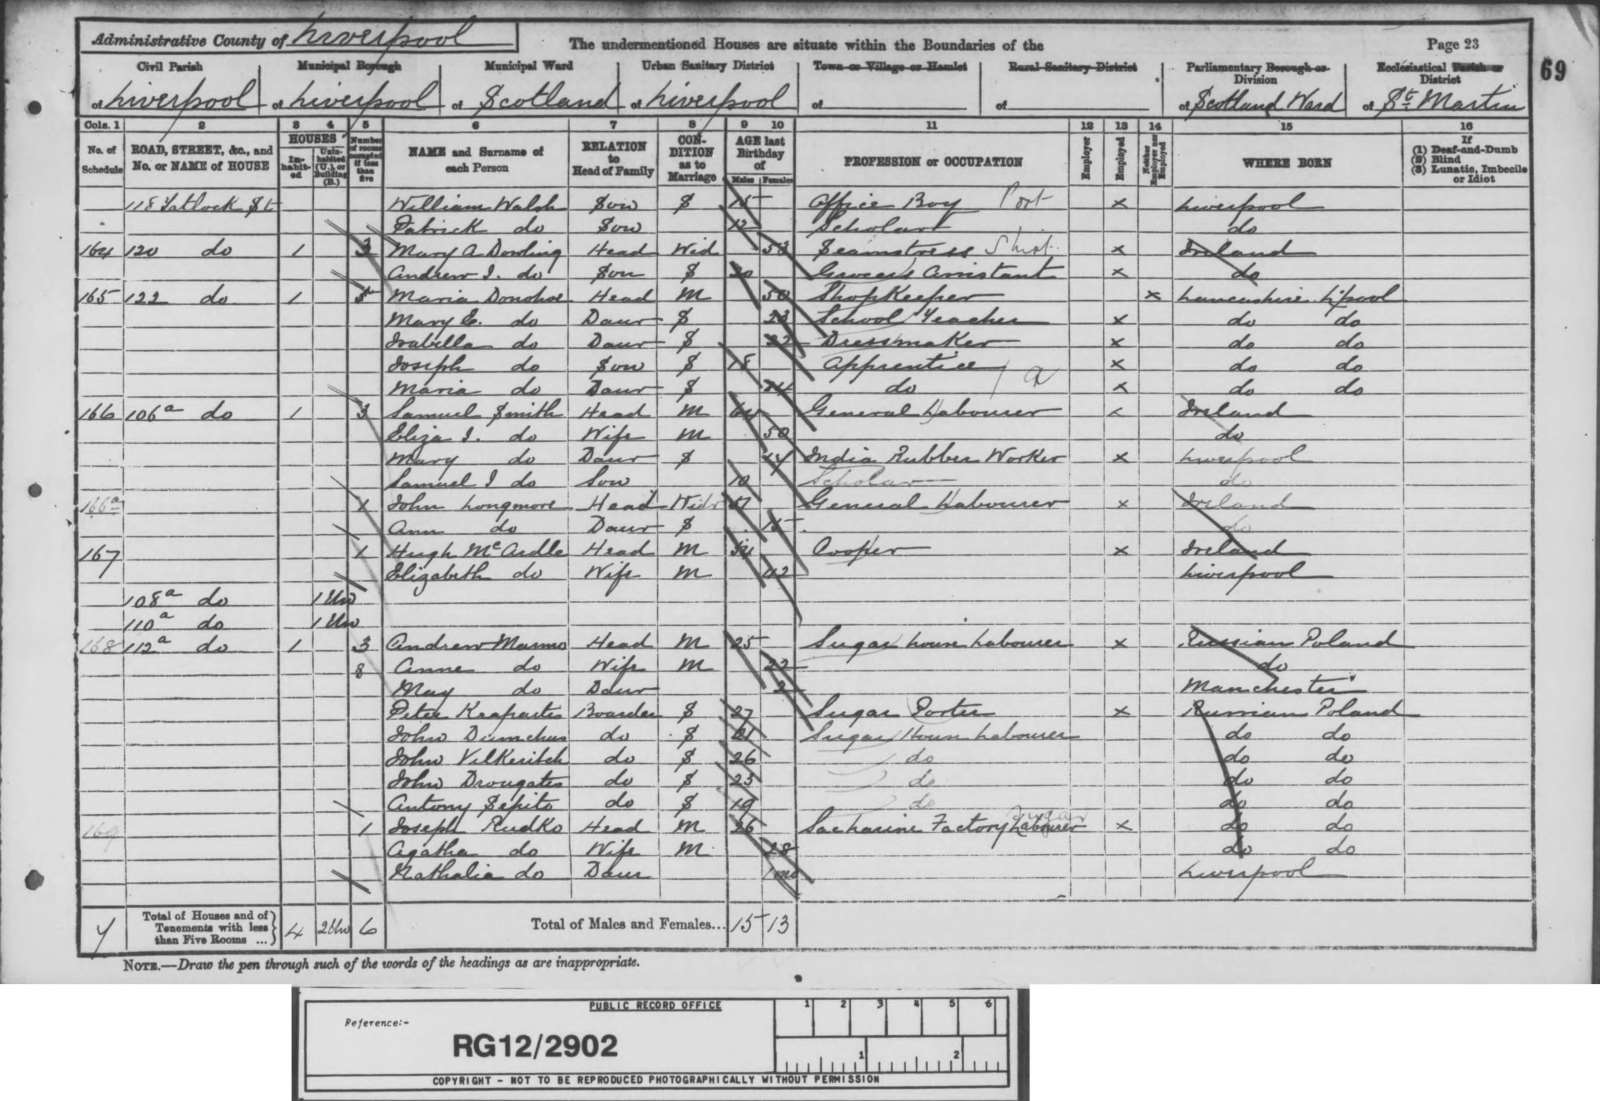 Administrative County of Liverpool The undermentioned Houses are situate within the Boundaries of the Page 23
69
Civil Parish Municipal Borough Municipal Ward Urban Sanitary District Town or Village or Hamlet Rural Sanitary District Parliamentary Borough or Division Ecclesiastical Parish or District
of Liverpool of Liverpool of Scotland of Liverpool of of of Scotland Ward of St Martin
Cols. 1 2 3 4 5 6 7 8 9 10 11 12 13 14 15 16
No. of Schedule ROAD, STREET, &c., and No. or NAME of HOUSE HOUSES Inhabited Uninhabited (U.), or Building (B.) Number of rooms occupied if less than five NAME and Surname of each Person RELATION to Head of Family CONDITION as to Marriage AGE last Birthday of Males Females PROFESSION or OCCUPATION Employer Employed Neither Employer nor Employed WHERE BORN If (1) Deaf-and-Dumb (2) Blind (3) Lunatic, Imbecile or Idiot
118 Tatlock St William Walsh Son S 15 Office Boy Port x Liverpool
Patrick do Son 12 Scholar do
164 120 do 1 3 Mary A Dowling Head Wid 53 Seamstress Shirt x Ireland
Andrew J. do Son S 20 Grocers Assistant x do
165 122 do 1 Maria Donohoe Head M 50 Shopkeeper x Lancashire L'pool
Mary E. do Daur S 23 School Teacher x do do
Isabella do Daur S 22 Dressmaker x do do
Joseph do Son S 18 Apprentice x do do
Maria do Daur S 14 do x do do
166 106a do 1 3 Samuel Smith Head M General Labourer x Ireland
Eliza J. do Wife M 50 do
Mary do Daur S 14 India Rubber Worker x Liverpool
Samuel J do Son 10 Scholar do
166a John Longmore Head Widr General Labourer x Ireland
Ann do Daur S 15 do
167 1 Hugh McArdle Head M Cooper x Ireland
Elizabeth do Wife M 42 Liverpool
108a do 1 Un
110a do 1 Un
168 112a do 1 3 Andrew Mamno Head M 25 Sugar house Labourer x Russian Poland
8 Anne do Wife M 22 do
May do Daur 2 Manchester
Peter Boarder S 27 Sugar Porter x Russian Poland
John do S 21 Sugar House Labourer do do
John do S 26 do do do
John Drougates do S 23 do do do
Antony do S 19 do do do
169 1 Joseph Rudko Head M 26 Sacharine Factory Labourer Sugar x do do
Agatha do Wife M 28 do do
Nathalia do Daur 1 mo Liverpool
7 Total of Houses and of Tenements with less than Five Rooms ... 4 2 Un 6 Total of Males and Females... 15 13
NOTE.—Draw the pen through such of the words of the headings as are inappropriate.
PUBLIC RECORD OFFICE 1 2 3 4 5 6
Reference:-
RG12/2902
1 2
COPYRIGHT - NOT TO BE REPRODUCED PHOTOGRAPHICALLY WITHOUT PERMISSION